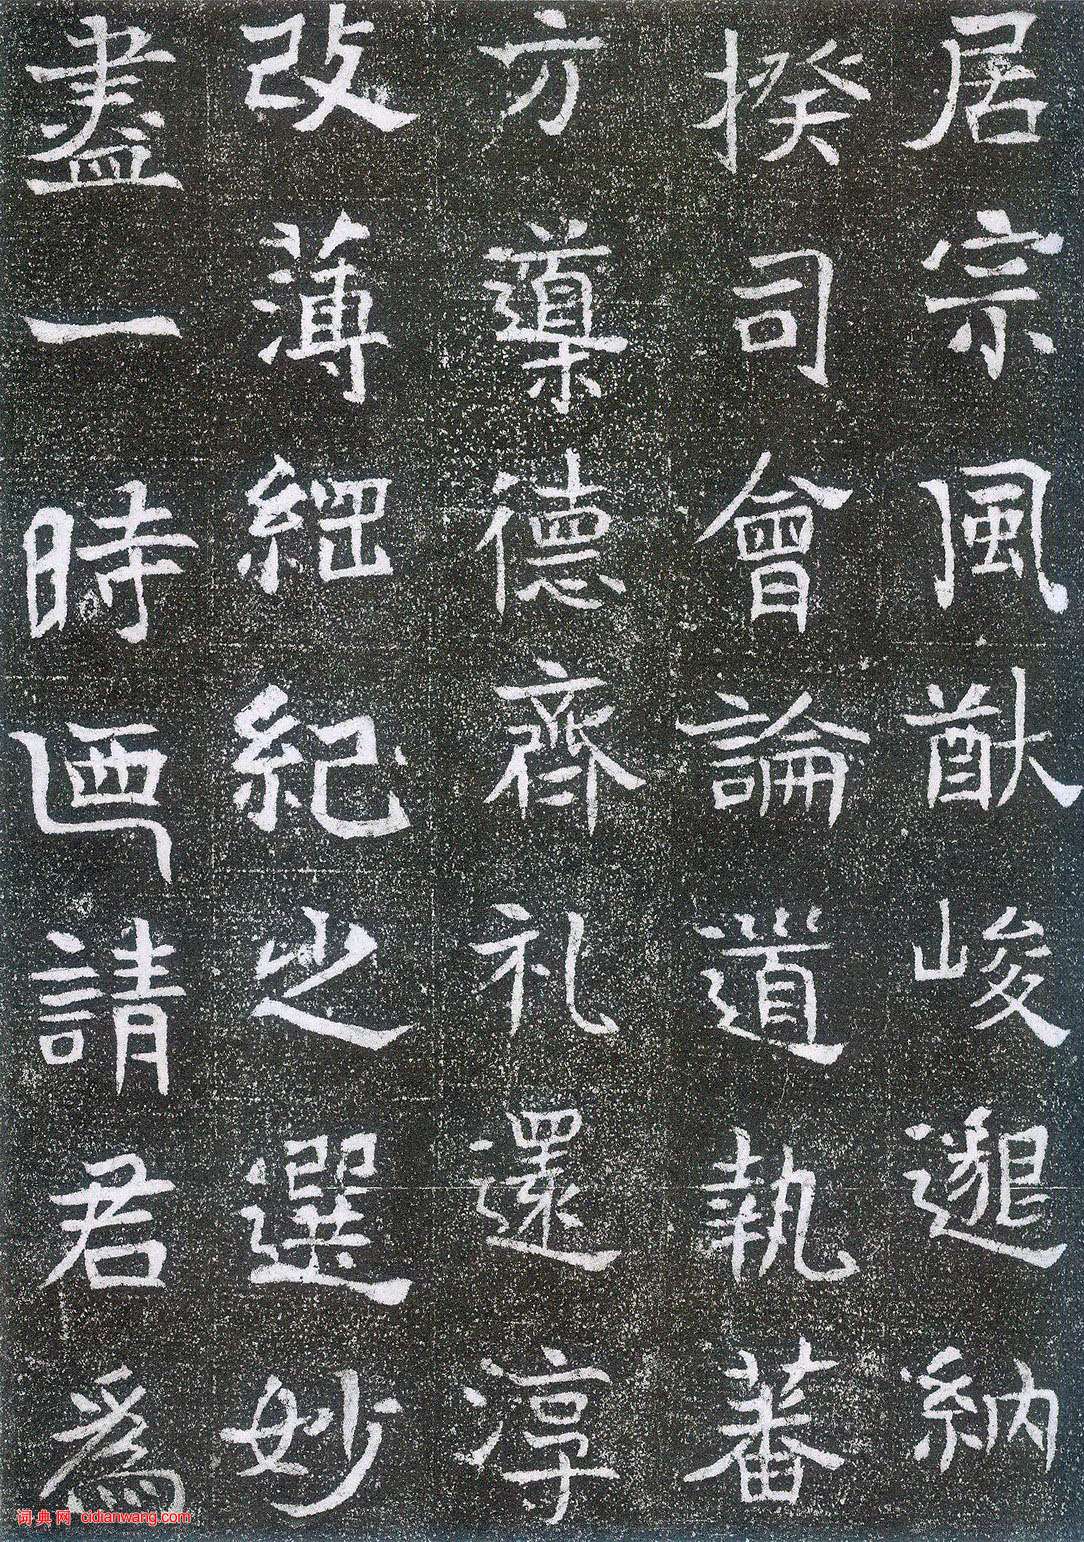 居宗風猷峻遡納
揆司會論道執蕃
方導德齊礼還淳
改薄綑紀之選妙
盡一時西請君爲
词典网 cidianwang.com